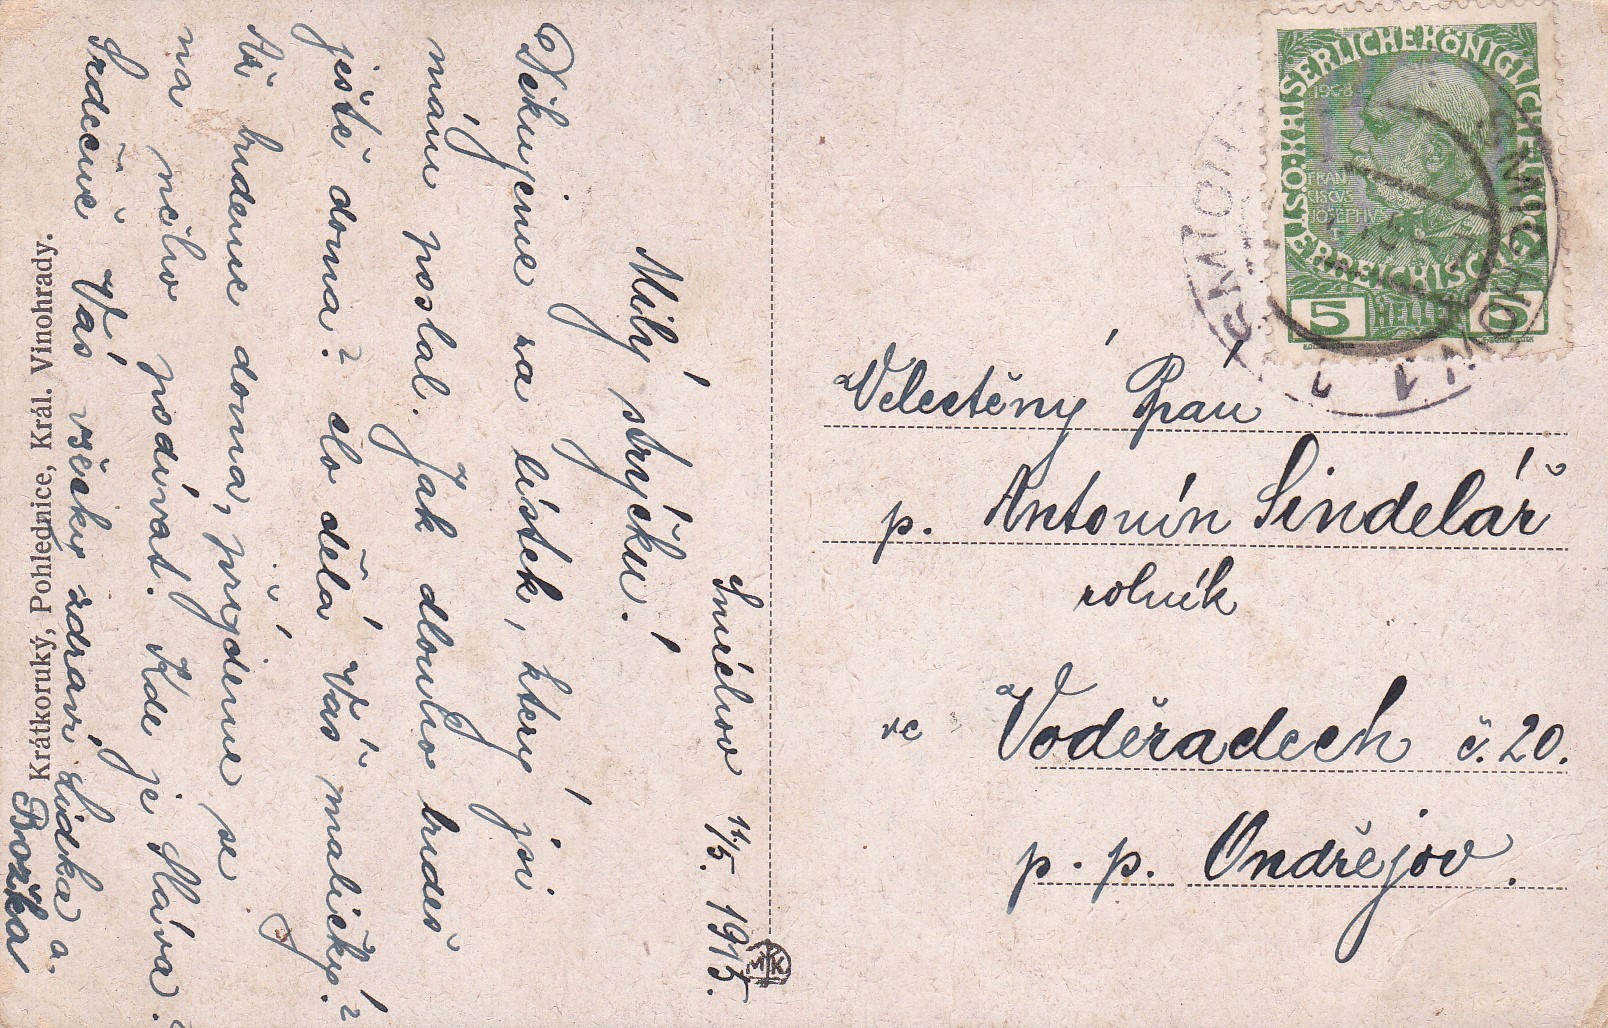 Smíchov 11./5. 1915.
Milý strýčku!
Děkujeme za lístek, který jsi
mám poslal. Jak dlouho budeš
ještě doma? co dělá Váš maličký?
Až budeme doma, přijdeme se
na něho podívat. Kde je Sláva?
Srdečně Vás všecky zdraví Lidka a.
Božka
Krátkoruký, Pohlednice, Král. Vinohrady.
MK
KAISERLICHE KÖNIGLICHE
ÖSTERREICHISCHE
1908
FRAN
CISCVS
IOSEPHVS
5 HELLER 5
SMÍCHOV 1
SMICHOW 1
Velectěný Pan
p. Antonín Šindelář
rolník
ve Voděradech č. 20.
p. p. Ondřejov.